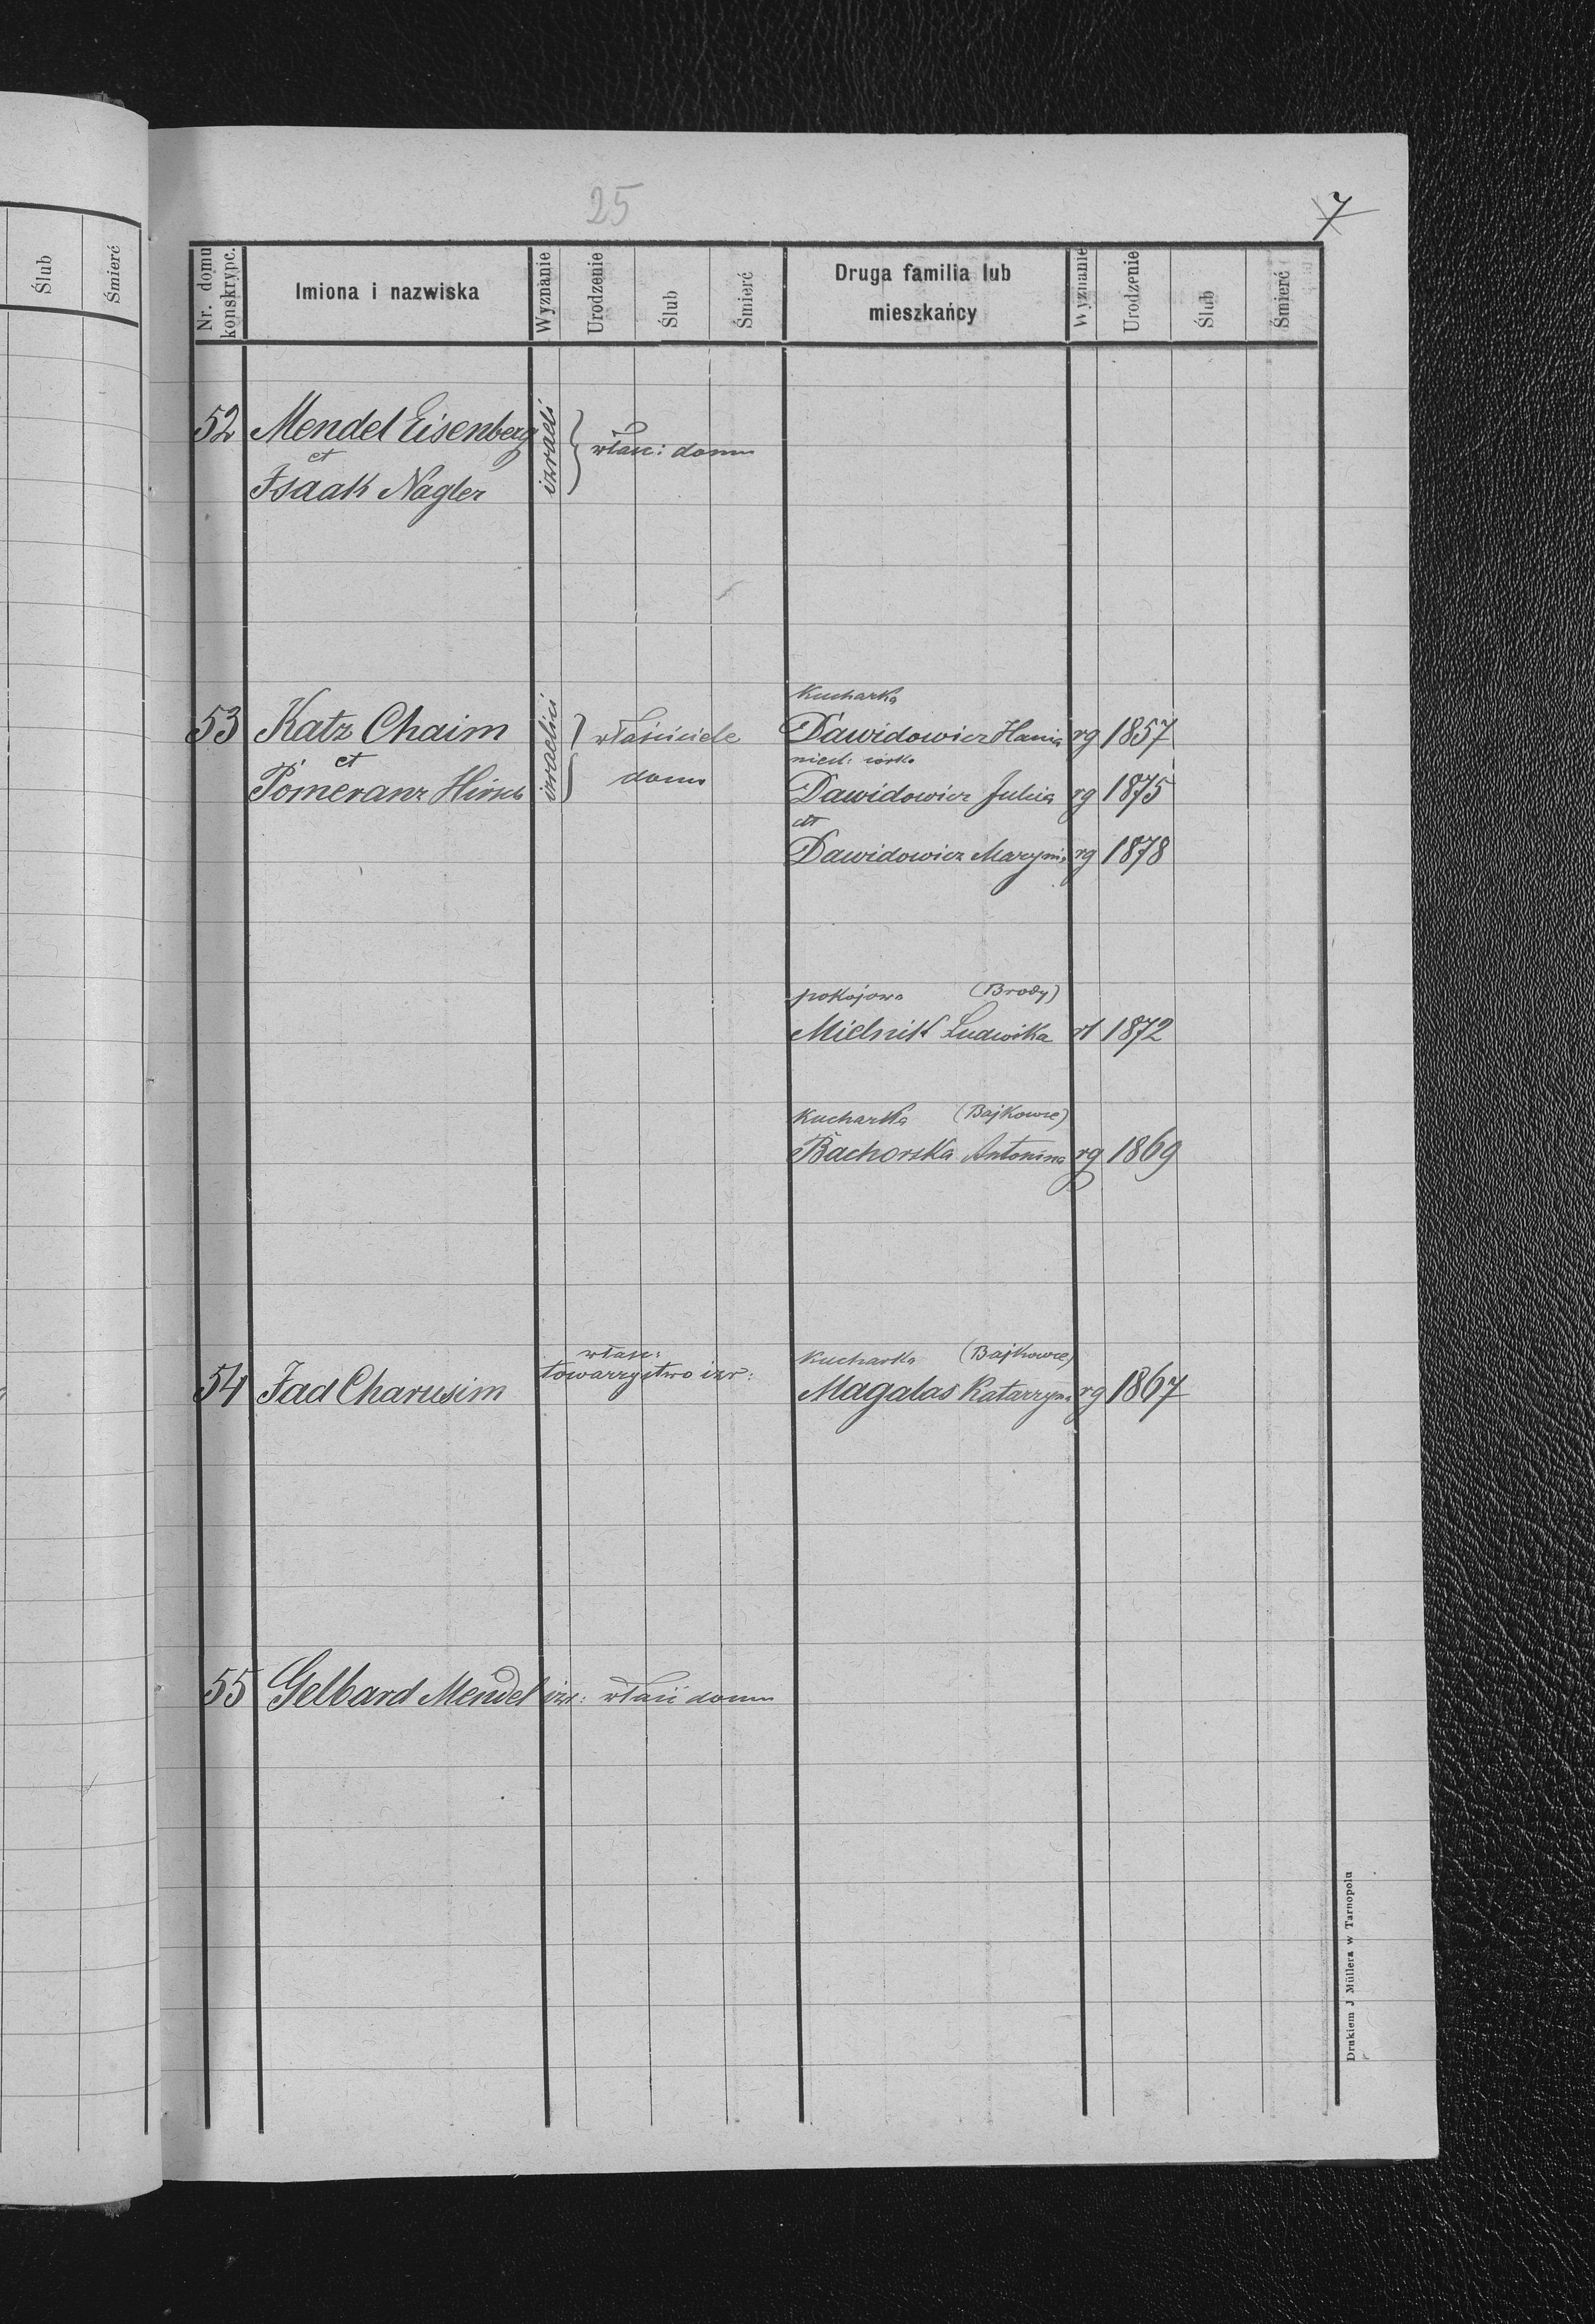 Ślub
Śmierć
25
7
Nr. domu konskrypc.
Imiona i nazwiska
Wyznanie
Urodzenie
Ślub
Śmierć
Druga familia lub
mieszkańcy
Wyznanie
Urodzenie
Ślub
Śmierć
52 Mendel Eisenberg
et
Isaak Nagler
izraeli
właśc: domu
53 Katz Chaim
et
Pomeranz Hirsch
izraelici
właściciele
domu
Kucharka
Dawidowicz Hania rg 1857
nieśl: córka
Dawidowicz Julia rg 1875
dt
Dawidowicz Marynia rg 1878
pokojowa (Brody)
Mielnik Ludwika rł 1872
Kucharka (Bajkowce)
Bachorska Antonina rg 1869
54 Jad Charusim
właśc:
towarzystwo izr:
Kucharka (Bajkowce)
Magalas Katarzyna rg 1867
55 Gelbard Mendel izr: właśc domu
Drukiem J Müllera w Tarnopolu